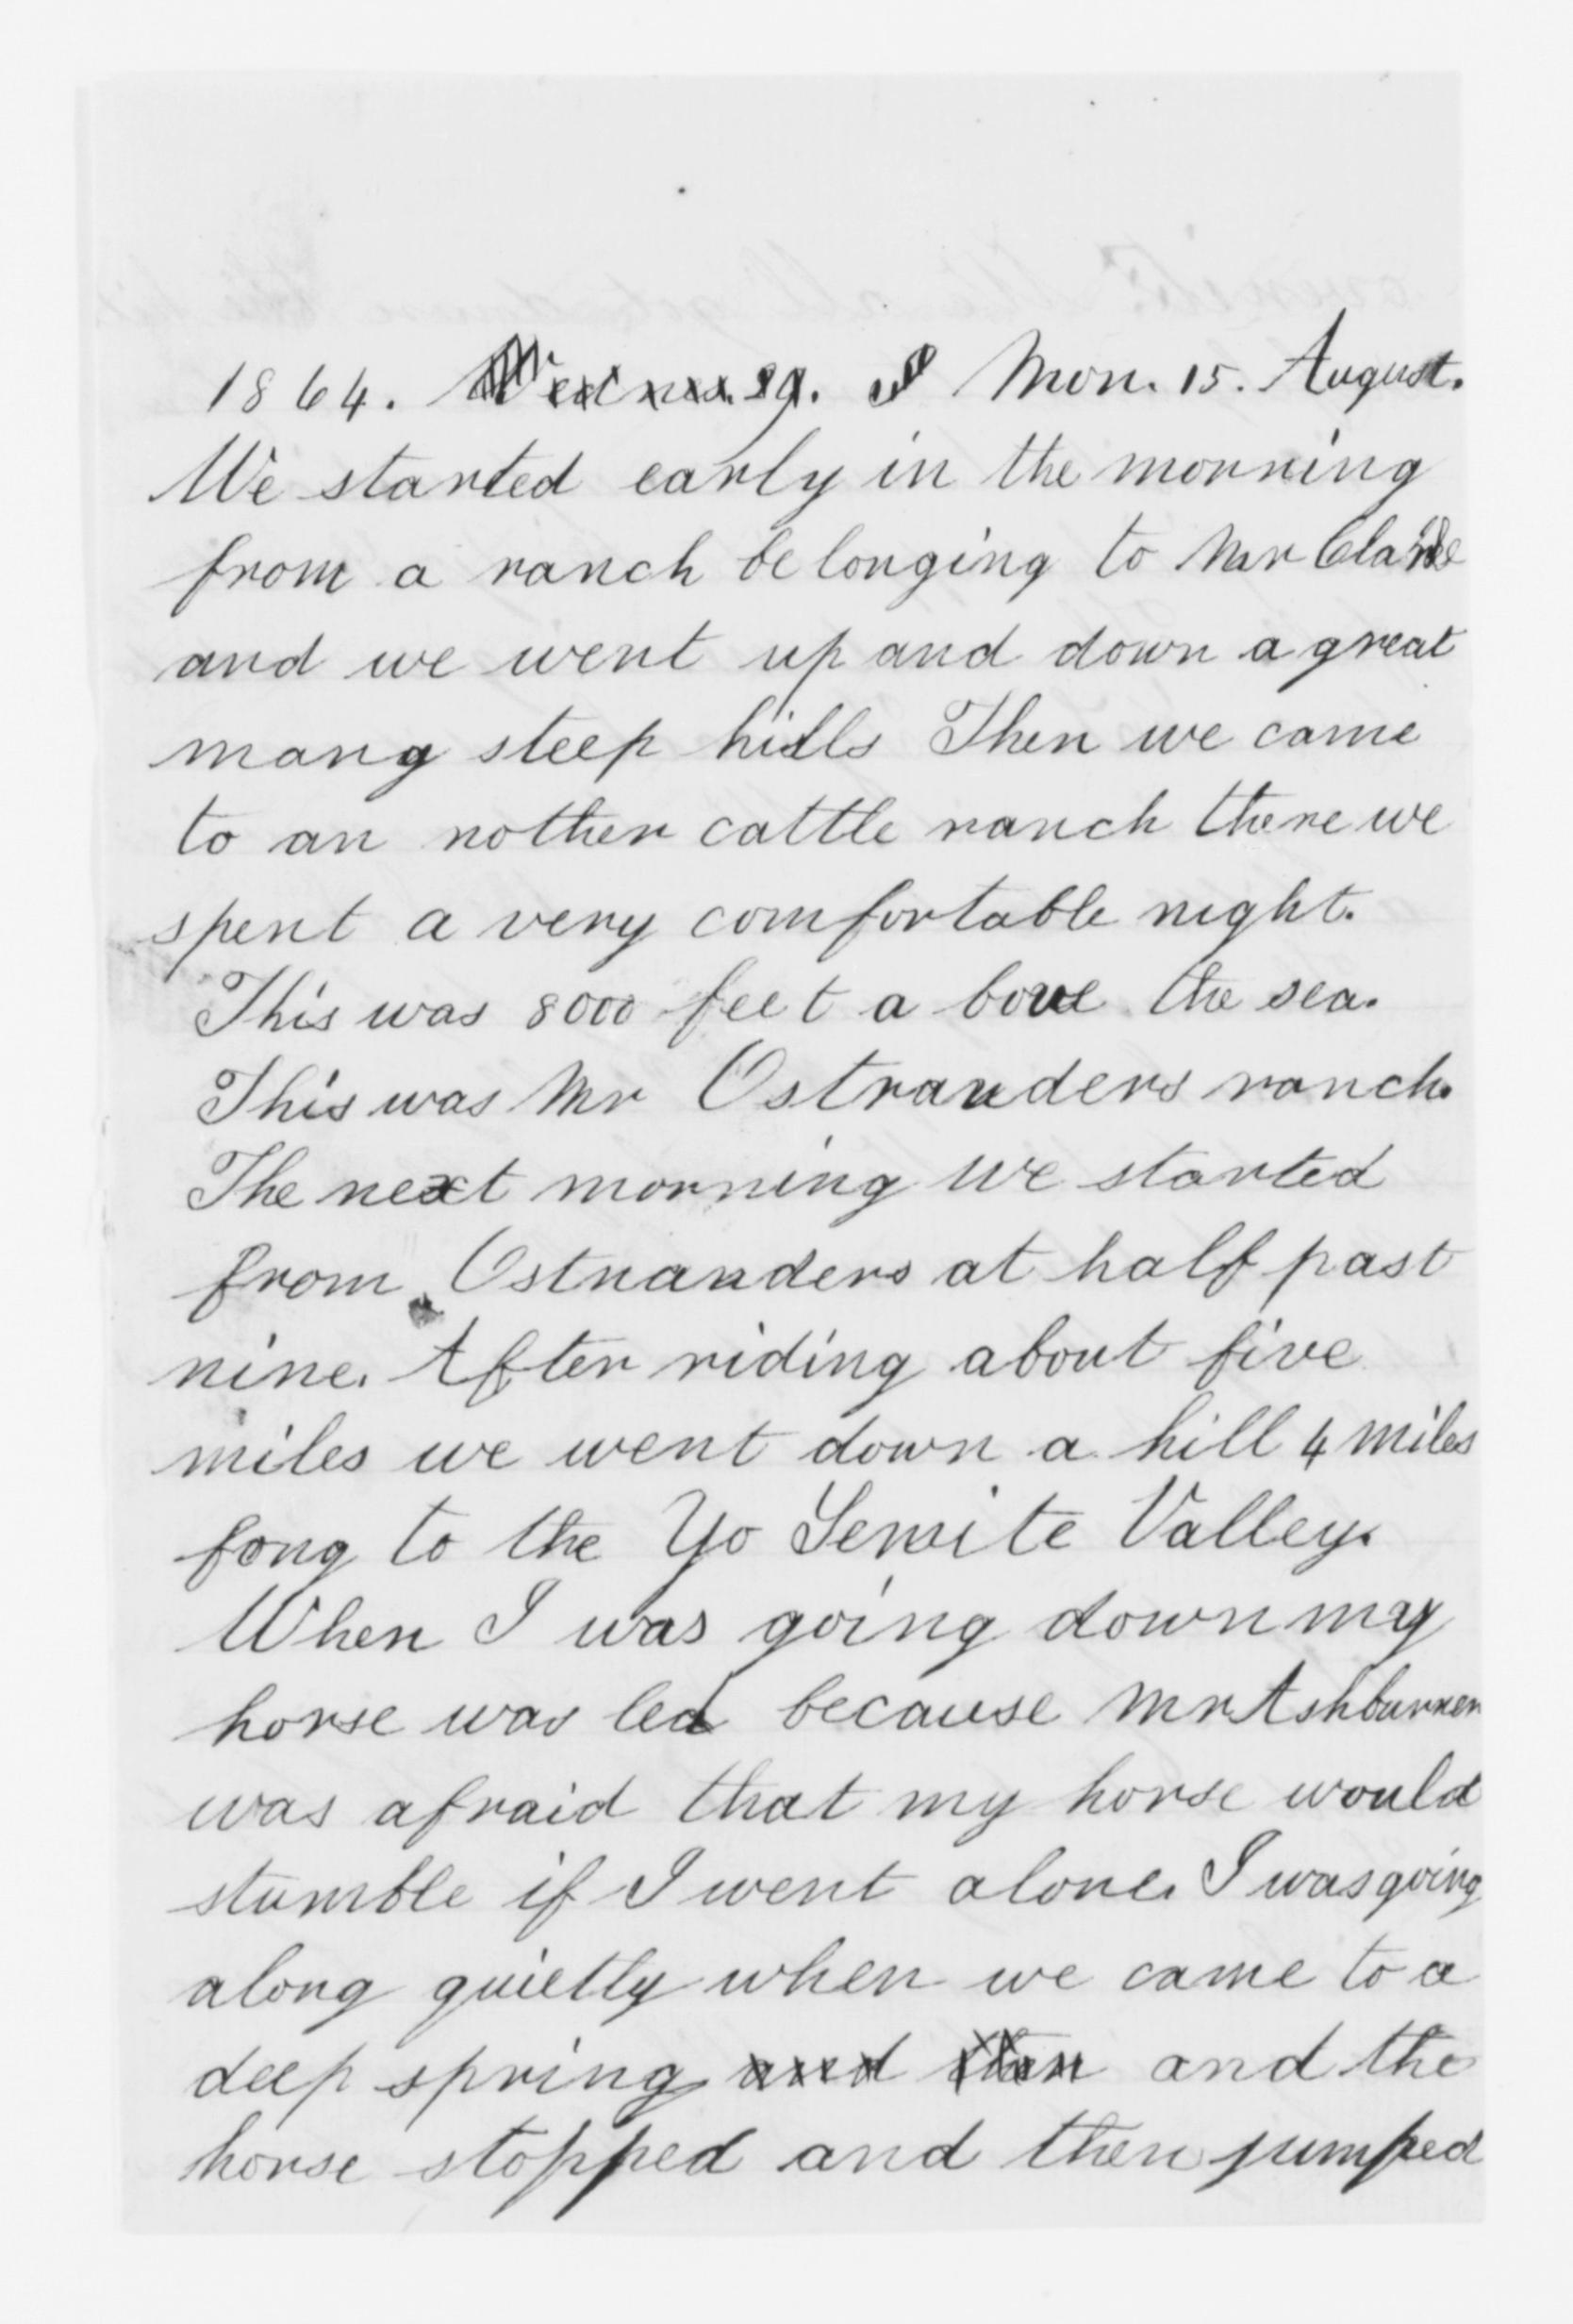 1864. Mon. 15. August.
We started early in the morning
from a ranch be longing to Mr Clarke
and we went up and down a great
many steep hills Then we came
to an nother cattle ranch there we
spent a very comfortable night.
This was 8000 feet a bove the sea.
This was Mr Ostranders ranch.
The next morning we started
from Ostranders at half past
nine. After riding about five
miles we went down a hill 4 miles
long to the Yo Semite Valley.
When I was going down my
horse was led because Mr Ashburner
was afraid that my horse would
stumble if I went alone. I was going
along quietly when we came to a
deep spring and then and the
horse stopped and then jumped